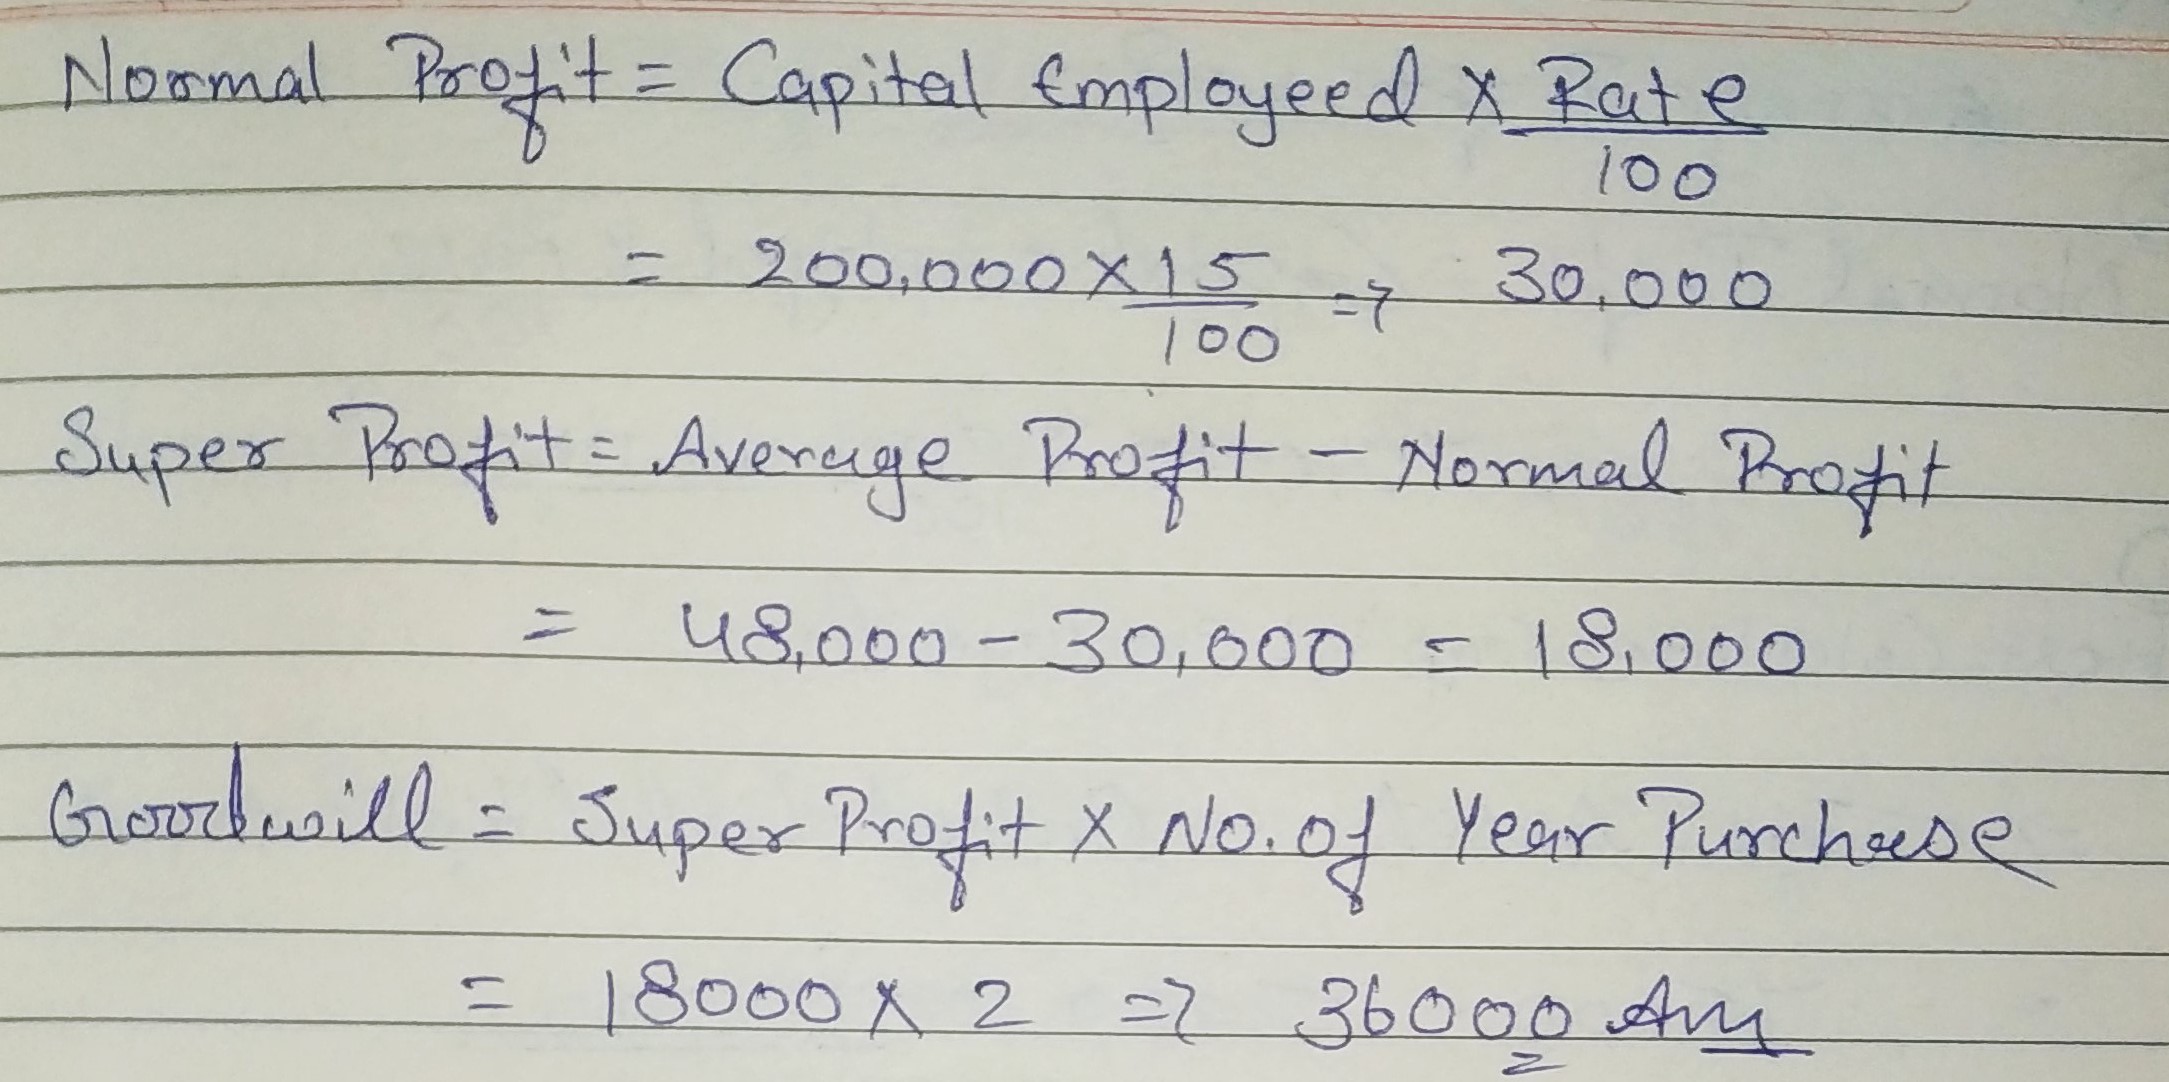 Normal Profit = Capital Employeed X Rate
100
= 200,000 X 15 => 30,000
100
Super Profit = Average Profit - Normal Profit
= 48,000 - 30,000 = 18,000
Goodwill = Super Profit X No. of Year Purchase
= 18000 X 2 => 36000 Ans